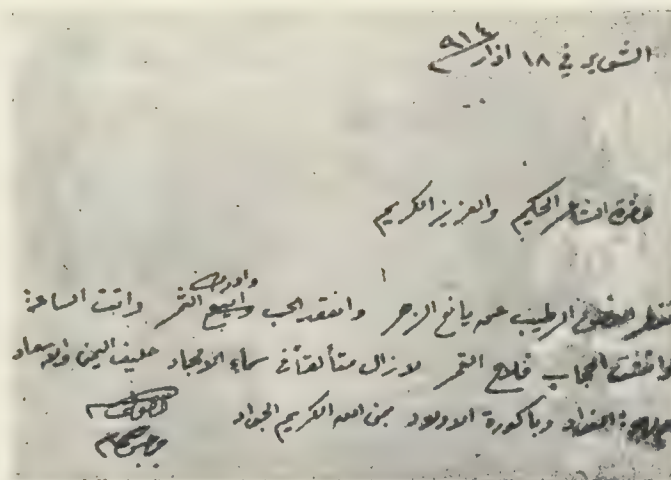 الشوير في ١٨ اذار ٩١٤
حضرة الشاعر الحكيم والعزيز الكريم
وادرك
الرطيب عن يانع الزهر وانعقد الحب واينع الثمر واتت الساعة
الحجاب فلاح القمر لا زال متألقاً في سماء الامجاد حليف اليمن والاسعاد
الفؤاد وباكورة الاولاد بمن الله الكريم الجواد